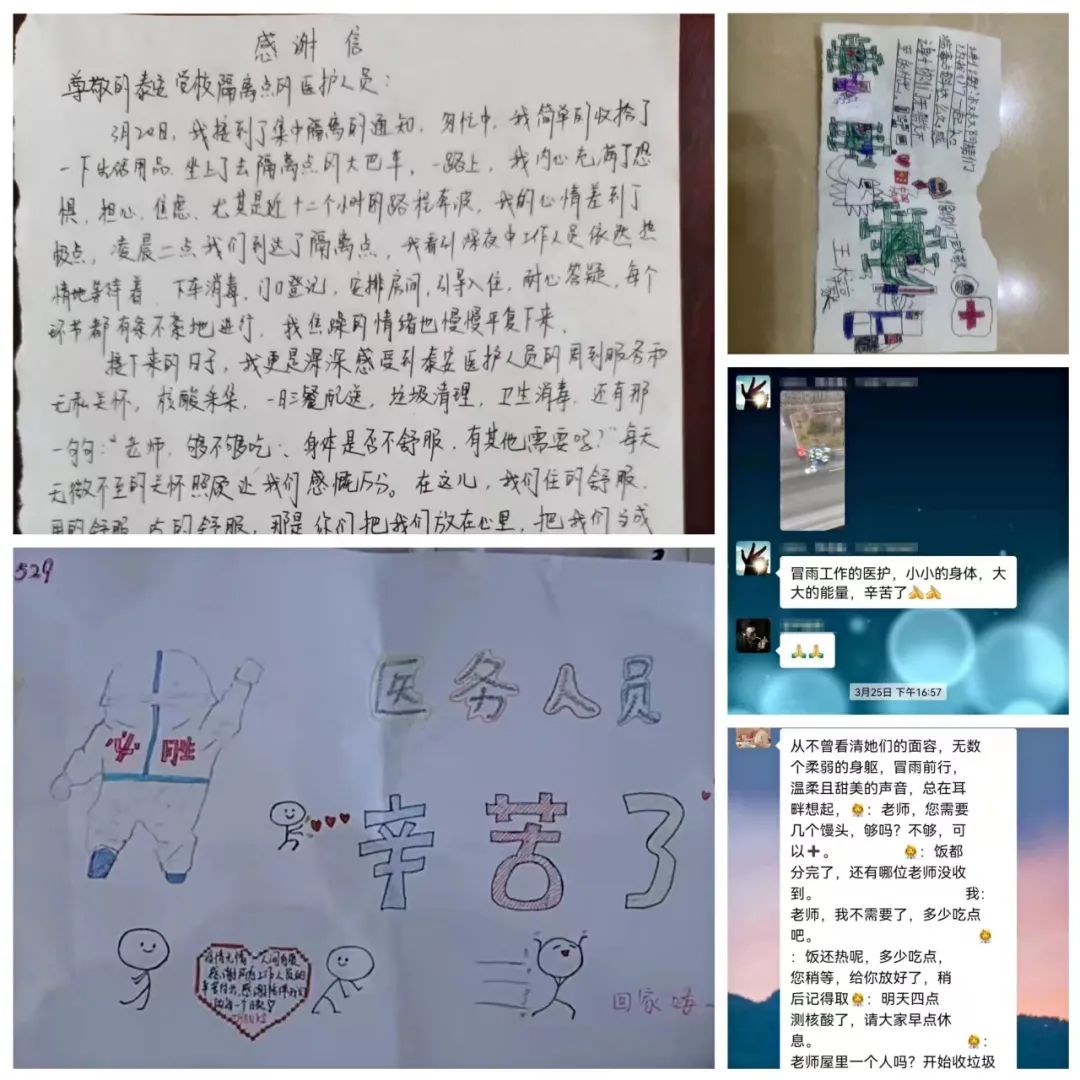 感谢信
尊敬的泰安学校隔离点的医护人员：
3月20日，我接到了集中隔离的通知，匆忙中，我简单的收拾了
一下生活用品，坐上了去隔离点的大巴车，一路上，我内心充满了恐
惧、担心、焦虑，尤其是近十二个小时的路程奔波，我的心情差到了
极点，凌晨二点我们到达了隔离点，我看到深夜中工作人员依然热
情地等待着，下车消毒，门口登记，安排房间，引导入住，耐心答疑，每个
环节都有条不紊地进行，我焦躁的情绪也慢慢平复下来。
接下来的日子，我更是深深感受到泰安医护人员的周到服务和
无私关怀，核酸采集，一日三餐配送，垃圾清理，卫生消毒，还有那
一句句："老师，够不够吃、身体是否不舒服，有其他需要吗？"每天
无微不至的关怀照顾让我们感慨万分。在这儿，我们住的舒服，
用的舒服，吃的舒服，那是你们把我们放在心里，把我们当成
529
医务人员
辛苦了
疫情无情 人间有爱
THANKS
回家喽
冒雨工作的医护，小小的身体，大
大的能量，辛苦了
3月25日 下午16:57
从不曾看清她们的面容，无数
个柔弱的身躯，冒雨前行，
温柔且甜美的声音，总在耳
畔想起，👷：老师，您需要
几个馒头，够吗？不够，可
以➕。 👷：饭都
分完了，还有哪位老师没收
到。 我：
老师，我不需要了，多少吃点
吧。 👷
：饭还热呢，多少吃点，
您稍等，给你放好了，稍
后记得取👷：明天四点
测核酸了，请大家早点休
息。 👷：
老师屋里一个人吗？开始收垃圾